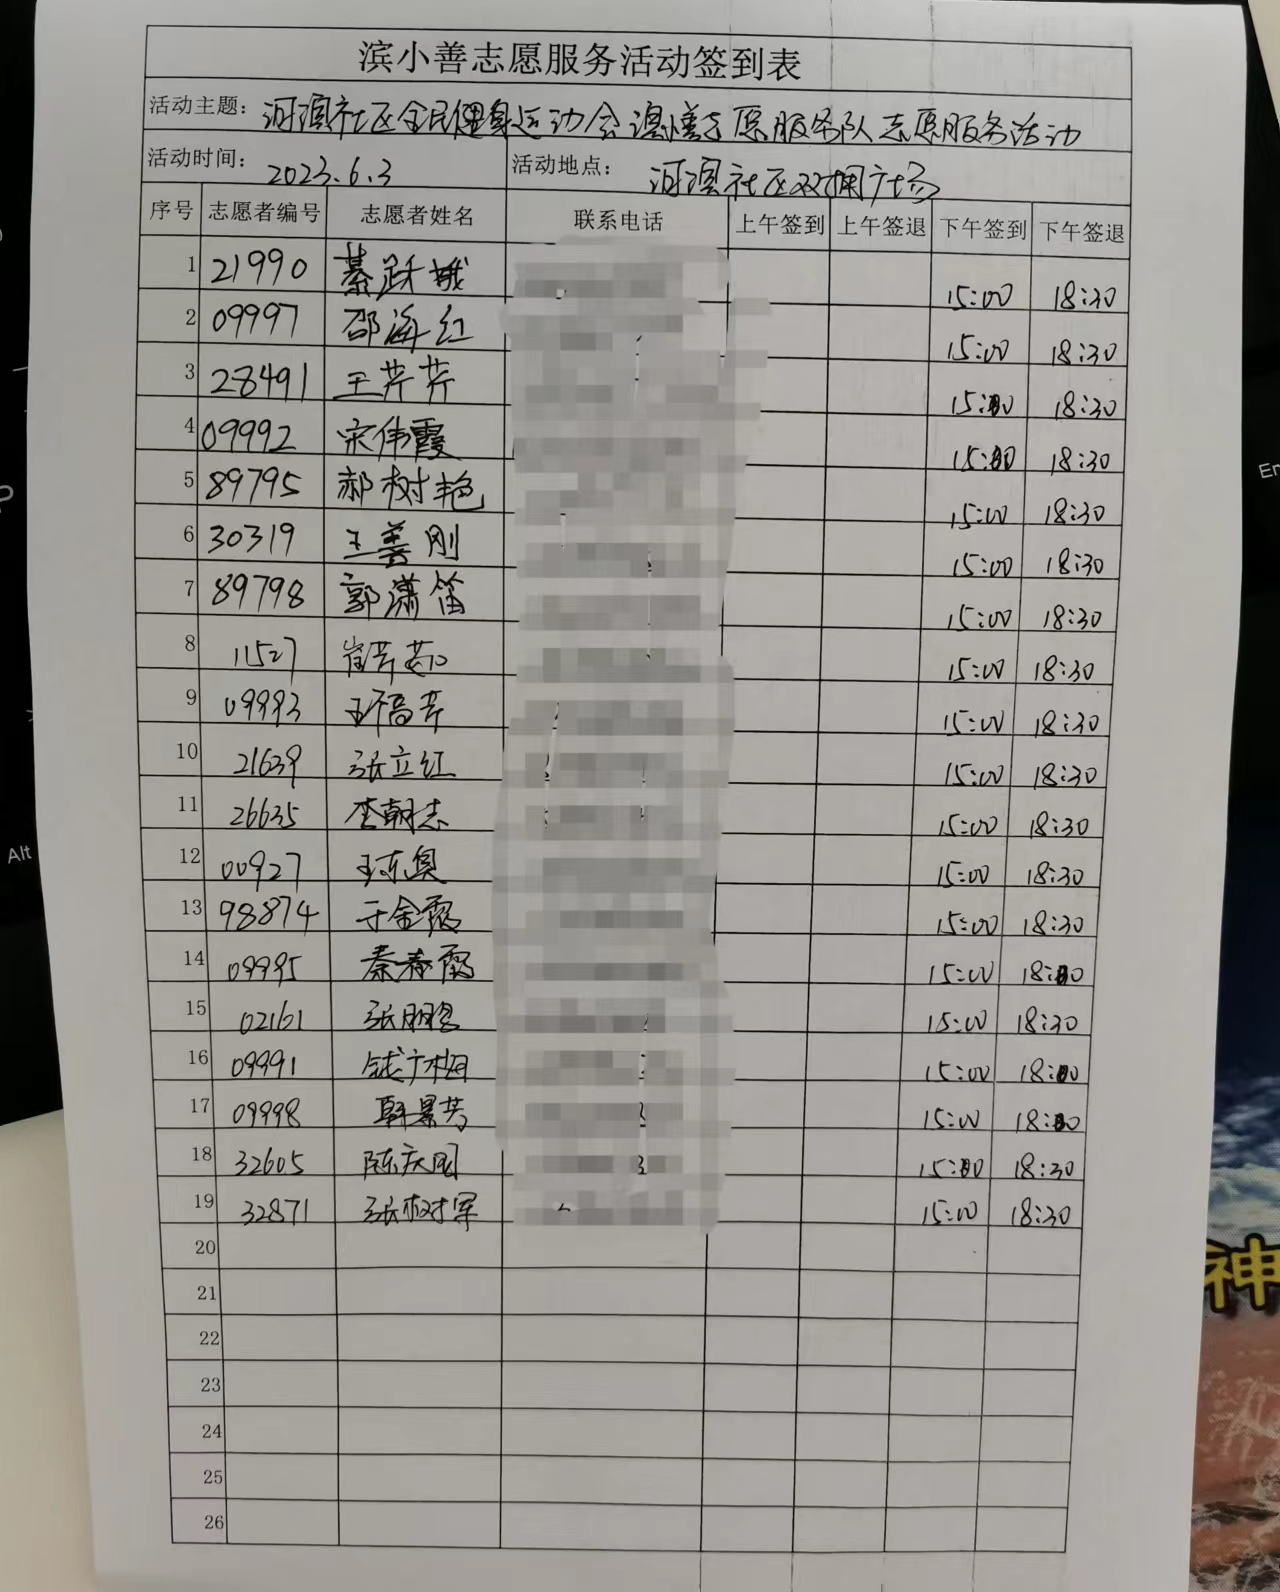 滨小善志愿服务活动签到表
活动主题: 河滨社区全民健身运动会 志愿服务队志愿服务活动
活动时间: 2023.6.3 活动地点: 河滨社区双拥广场
序号 志愿者编号 志愿者姓名 联系电话 上午签到 上午签退 下午签到 下午签退
1 21990 綦跃娥 15:00 18:30
2 09997 邵海红 15:00 18:30
3 28491 王芹芹 15:00 18:30
4 09992 宋伟霞 15:00 18:30
5 89795 郝树艳 15:00 18:30
6 30319 王善刚 15:00 18:30
7 89798 郭潇笛 15:00 18:30
8 11527 崔芹茹 15:00 18:30
9 09993 15:00 18:30
10 21639 张立红 15:00 18:30
11 26635 李朝志 15:00 18:30
12 00927 王东奥 15:00 18:30
13 98874 于金霞 15:00 18:30
14 09995 秦春霞 15:00 18:30
15 02161 15:00 18:30
16 09991 钱广梅 15:00 18:30
17 09998 韩景芳 15:00 18:30
18 32605 陈庆国 15:00 18:30
19 32871 张树军 15:00 18:30
20
21
22
23
24
25
26
Alt
En
神